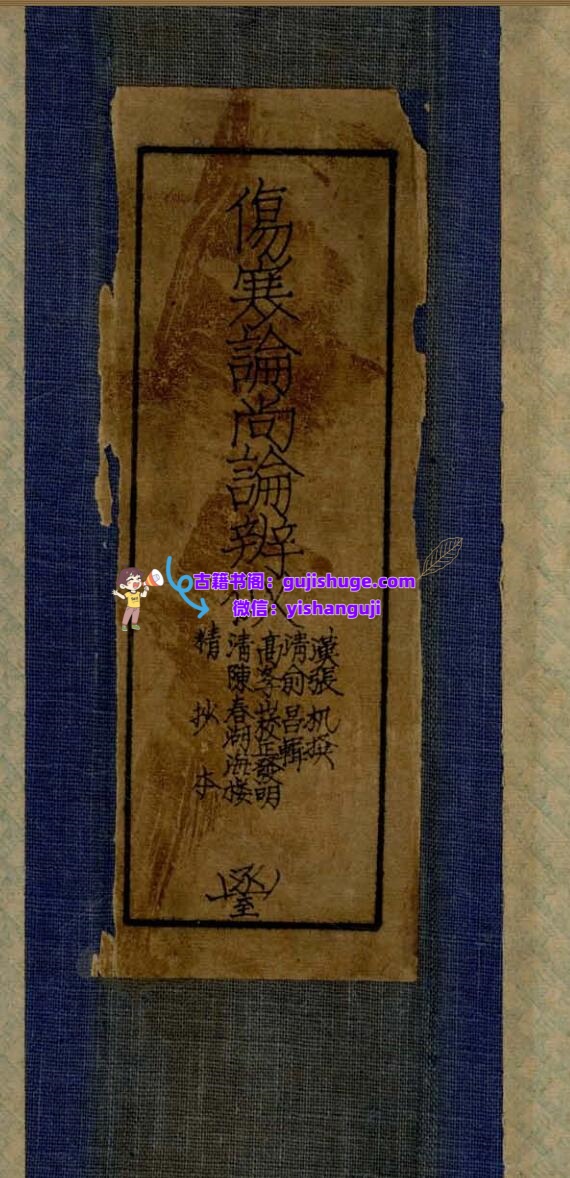 傷寒論尚論辨
漢張机撰
清俞呂輯
高李崧校正發明
清陳春湖海楼
精抄本
古籍书阁：gujishuge.com
微信：yishanguji